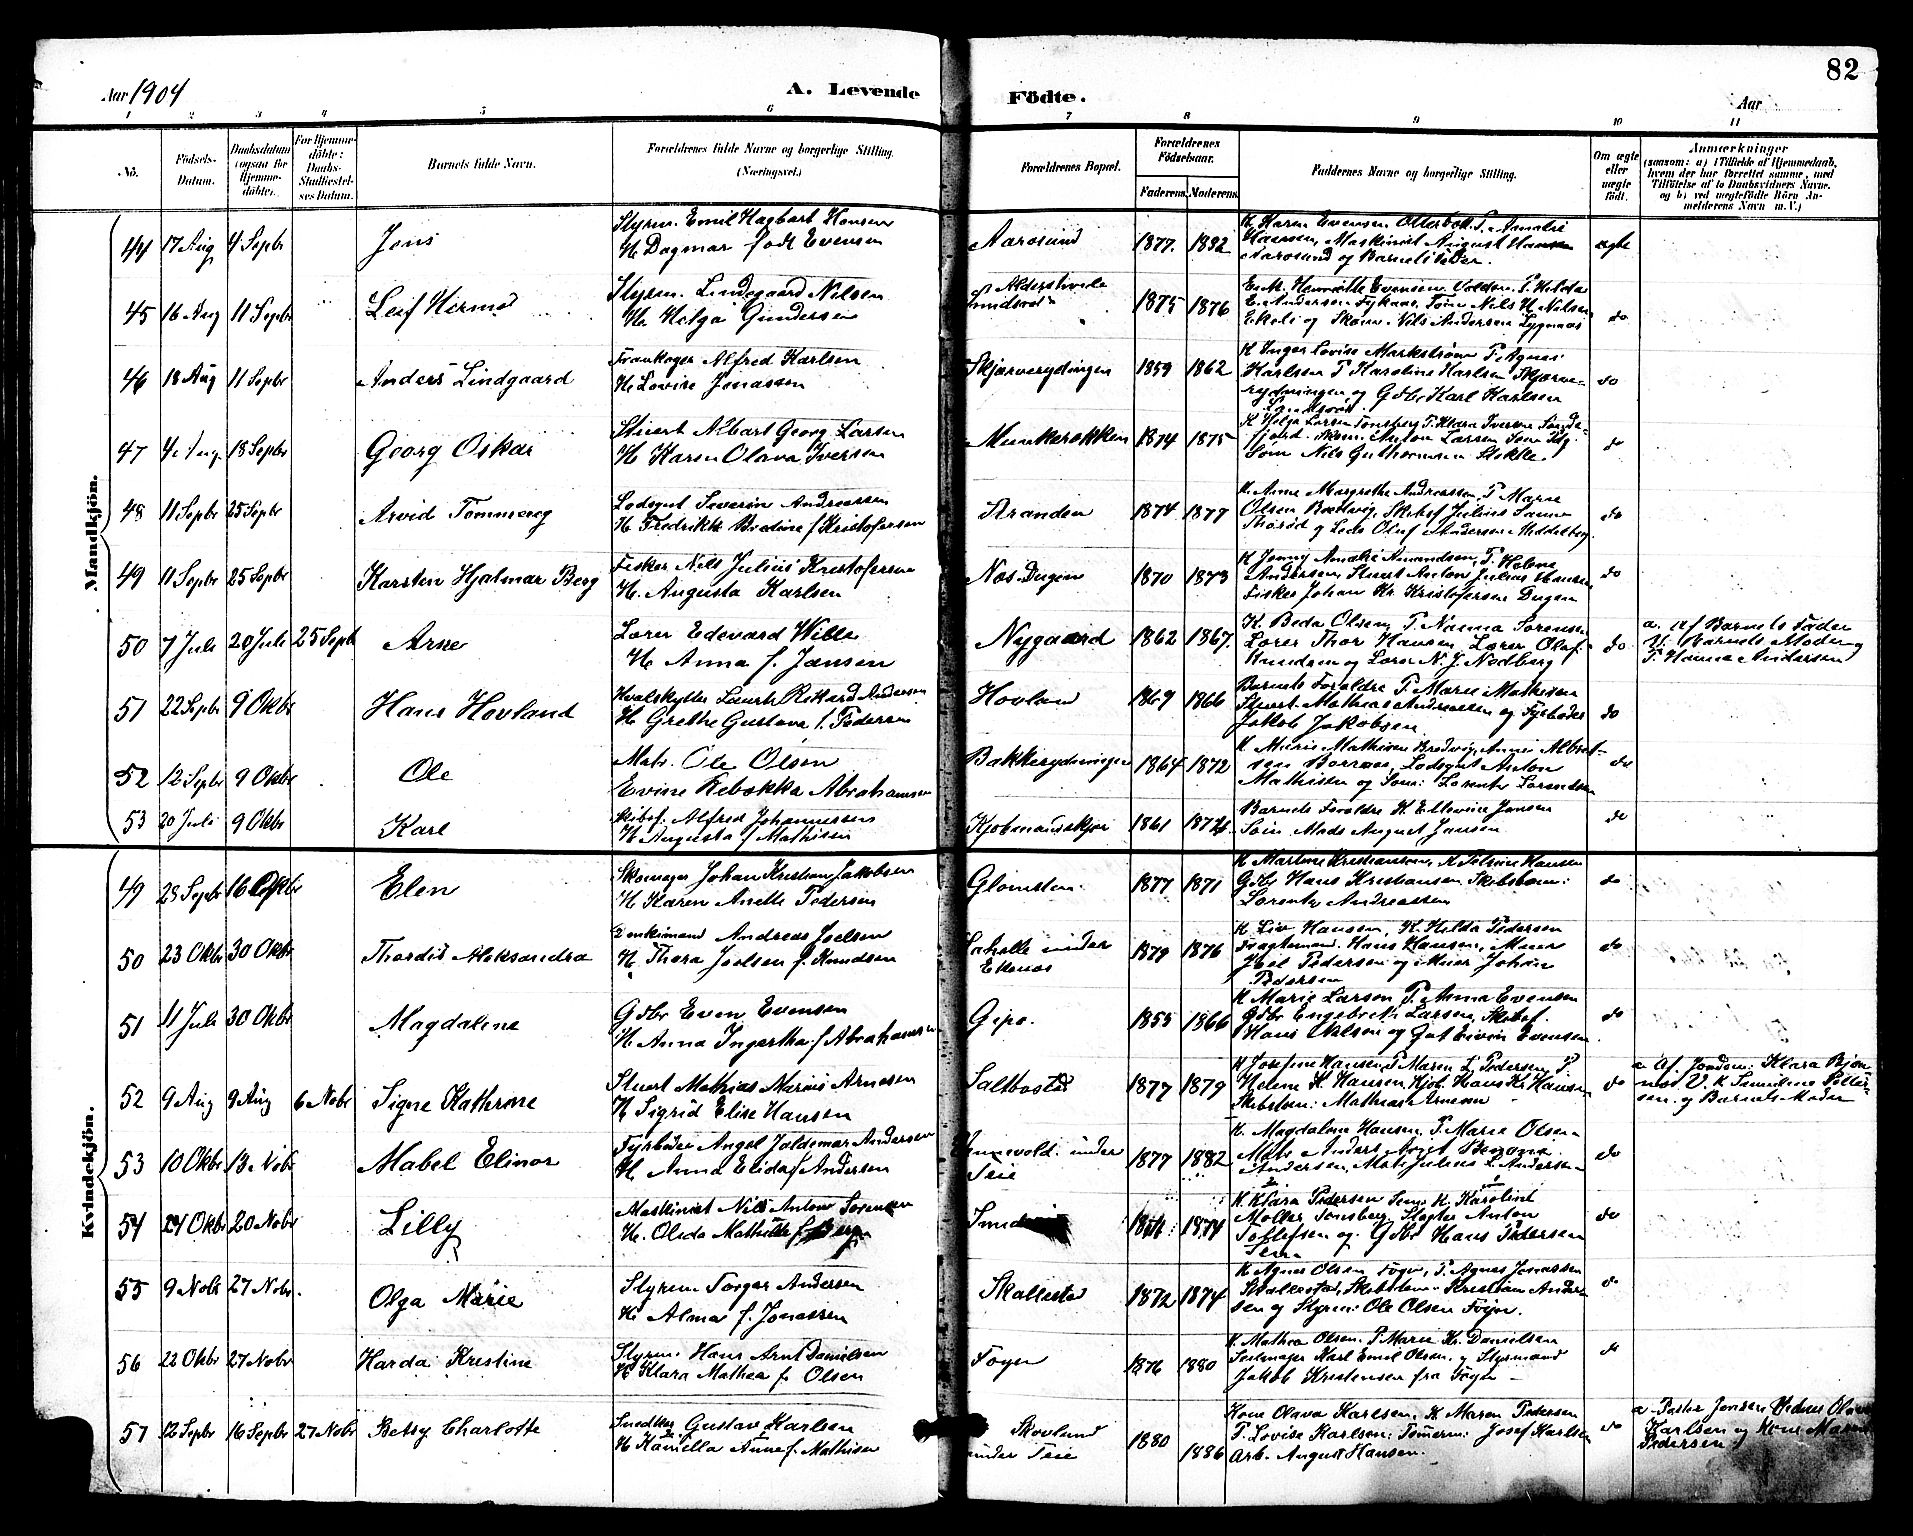 82
Aar 1904
A. Levende Födte.
Aar
1 2 3 4 5 6 7 8 9 10 11
No.
Födsels-Datum.
Daabsdatum (ogsaa for Hjemmedöbte).
For Hjemmedöbte: Daabs-Stadfæstelses-Datum.
Barnets fulde Navn.
Forældrenes fulde Navne og borgerlige Stilling. (Næringsvei.)
Forældrenes Bopæl.
Forældrenes Födselsaar.
Faderens. Moderens.
Faddernes Navne og borgerlige Stilling.
Om ægte eller uægte født.
Anmærkninger
(saasom: a) i Tilfælde af Hjemmedaab, hvem der har forrettet samme, med Tilföielse af to Daabsvidners Navne, og b) ved uægtefödte Börn Anmelderens Navn m. V.)
Mandkjön.
44 17 Aug 4 Septbr Jens
Styrm. Emil Hagbart Hansen
H. Dagmar født Evensen
Aarøsund 1877. 1882
K. Karen Evensen Otterbek P. Amalie
Hansen, Maskinist August Hansen
Aarøsund og Barnets Fader.
ægte
45 16 Aug 11 Septbr Leif Hermod
Styrm. Lindegaard Nilsen
H. Helga Gundersen
Sundsvold 1875 1876
Nils H. Nilsen
Ekeli og Skom. Nils Andersen
do
46 18 Aug 11 Septbr Anders Lindgaard
Trankoger Alfred Karlsen
H. Lovise Jonassen
Skjærverydningen 1859 1862
K Inger Lovise Markström P. Agnes
Karlsen P Karoline Karlsen Skjærve-
rydningen og Gdbr. Karl Karlsen
do
47 18 Septbr Georg Oskar
Stuert Albart Georg Larsen
H Karen Olava Iversen
Munkerekken 1874 1875
K Helga Larsen Tønsberg P. Klara Iversen Sande-
fjord. Anton Larsen
Søm Nils Guthormsen Stokke.
do
48 11 Septbr 25 Septbr Arvid Tommereg
Lodsgut Severin Andreassen
H Fredrikke Bredine f Kristofersen
Stranden 1874 1877
K. Anne Margrethe Andreassen, P Marie
Olsen Julius Sanne
Thorød og Lods Oluf Andersen
do
49 11 Septbr 25 Septbr Karsten Hjalmar Berg
Fisker Nils Julius Kristofersen
H. Augusta Karlsen
Nes. Dugen 1870 1873
K Jenny Amalie Amandsen, P. Helene
Andersen, Stuert Anton Julius Hansen
Fisker Johan Kr. Kristofersen Dugen
do
50 7 Juli 20 Juli 25 Septbr Arne
Lærer Edevard Wille
H Anna f. Jansen
Nygaard 1862 1867.
K. Beda Olsen P. Nanna Sørensen
Lærer Thor Hansen, Lærer Olaf
Knudsen og Lærer N. J. Nedberg
do
a. Af Barnets Fader
V. Barnets Moder og
P. Hanna Andersen
51 22 Septbr 9 Oktbr Hans Hovland
Hvalskytter Laurits Rikard Andersen
H Grethe Gustava f. Pedersen
Hovland 1869 1866
Barnets Forældre P Marie Mathisen
Stuert. Mathias Andreassen og Fyrbøder
Jakob Jakobsen
do
52 12 Septbr 9 Oktbr Ole
Matr. Ole Olsen
Evine Rebekka Abrahamsen
Bakkerydningen 1864 1872
K Marie Mathisen Bredvig, Anne Albret-
sen Borraas, Lodsgut Anton
Mathisen og Søm: Lorentz Lorentsen
do
53 20 Juli 9 Oktbr Karl
Skibsf. Alfred Johannessen
H Augusta f Mathisen
Kjøbmandskjær 1861 1872
Barnets Forældre K. Ellevine Jansen
Søm. Mads August Jansen
do
Kvindekjön.
49 23 Septbr 16 Oktbr Elen
Skomager Johan Kristian Jakobsen
H Karen Anette Pedersen
Glomsten 1877 1871
K Martine Kristiansen, K Petrine Hansen
Gdbr Hans Kristiansen Skibstøm:
Lorentz Andreassen
do
50 23 Oktbr 30 Oktbr Thordis Aleksandra
Andreas Joelsen
H Thora Joelsen f. Knudsen
under Ekenes 1879 1876
K Liv Hansen, K. Hilda Pedersen
Fragtemand. Hans Hansen, Murer
Joel Pedersen og Murer Johan
Pedersen
do
51 11 Juli 30 Oktbr Magdalene
Gdbr Even Evensen
H Anna Ingertha f Abrahamsen
Gipø. 1855 1866
K Marie Larsen P. Anna Evensen
Gdbr Engebreth Larsen, Skibsf.
Hans Olsen og Gut Eivin Evensen
do
52 9 Aug 9 Aug 6 Nobr Signe Kathrine
Stuert Mathias Marius Arnesen
H Sigrid Elise Hansen
Saltbosted 1877 1879
K Josefine Hansen P Maren L Pedersen P
Helene H Hansen Kjøb. Hans Kr. Hansen
Skibstøm: Mathias Arnesen
do
a Af. Jordem. Klara Bjøn-
nes V. K Simeline Petter-
sen og Barnets Moder
53 10 Oktbr 13 Nobr Mabel Elinor
Fyrbøder Angel Valdemar Andersen
H. Anna Elida f Andersen
under Teie 1877 1882
K. Magdalene Hansen, P. Marie Olsen
Andersen, Mat: Julius L Andersen
do
54 24 Oktbr 20 Nobr Lilly
Maskinist Nils Anton Sørensen
H. Olida Mathilde f Berg
1874
K Klara Pedersen Sem, K. Karoline
Møller Tønsberg, Slagter Anton
Tollefsen og Gdbr Hans Pedersen
Sem
do
55 9 Nobr 27 Nobr. Olga Marie
Styrm Torger Andersen
H. Alma f. Jonassen
Skallested 1872 1874
K Agnes Olsen Føyn, P. Agnes Jonassen
Skallestad, Skibstøm: Kristian Ander-
sen og Styrm: Ole Olsen Føyn.
do
56 22 Oktbr 27 Nobr Harda Kristine
Styrm: Hans Arnt Danielsen
H Klara Mathea f. Olsen
Føyn 1876 1880
K. Mathea Olsen. P. Marie Kr. Danielsen
Seilmager Karl Emil Olsen og Styrmand
Jakob Kristensen fra Føyn
do
57 12 Septbr 16 Septbr 27 Nobr Betsy Charlotte
Snedker Gustav Karlsen
H Kamella Anne f. Mathisen
Skovlund
under Teie 1880 1886
Kone Olava Karlsen, K. Maren Pedersen
P. Lovise Karlsen: Tømerm: Josef Karlsen
Arb. August Hansen.
do
a Pastor Jensen Olava
Karlsen og Kone Maren
Pedersen